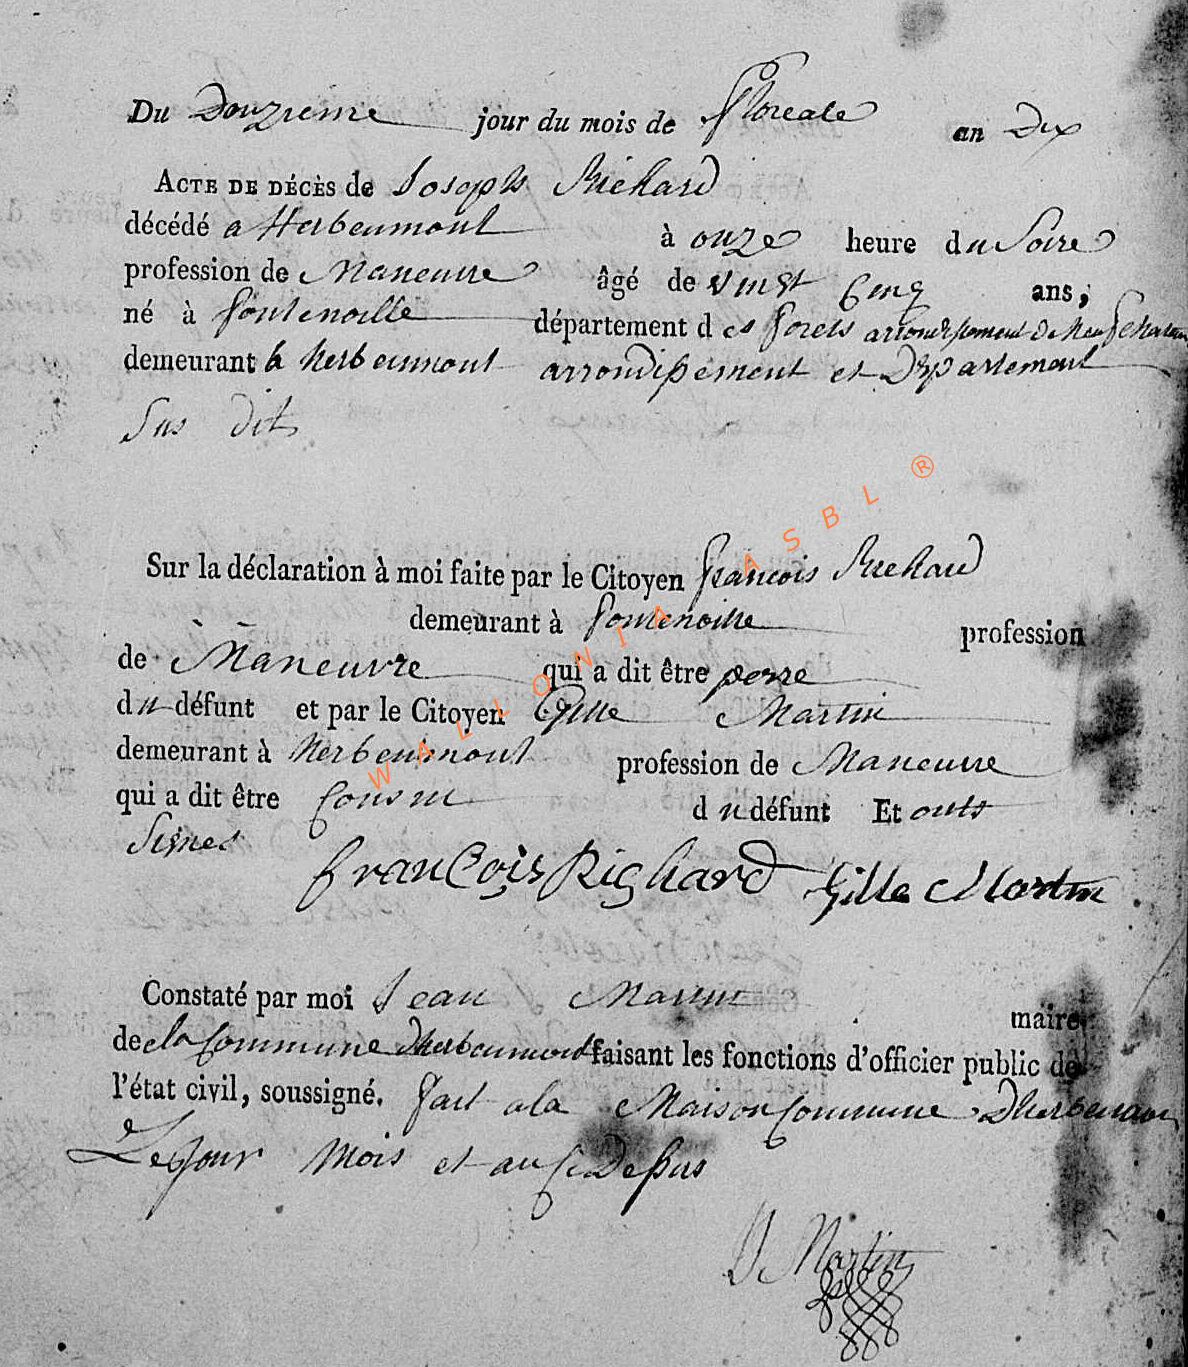 Du Douzieme jour du mois de floreale an Dix
ACTE DE DÉCÈS de Joseph Richard
décédé a Herbeumont à onze heure du Soire
profession de Maneuvre âgé de vingt Cinq ans,
né à fontenoille département des forets arrondissement de Neufchateau
demeurant à herbeumont arrondissement et Departement
Sus dit
Sur la déclaration à moi faite par le Citoyen francois Richard
demeurant à fontenoille profession
de Maneuvre qui a dit être perre
du défunt et par le Citoyen Gille Martin
demeurant à herbeumont profession de Maneuvre
qui a dit être Cousin du défunt Et onts
Signes
françois Righard Gille Martin
Constaté par moi Jean Martin maire
de la Commune Dherbeumont faisant les fonctions d'officier public de
l'état civil, soussigné. fait a la Maison Commune Dherbeumont
Les Jour Mois et an Ci Dessus
J Martin
WALLONIA ASBL ®